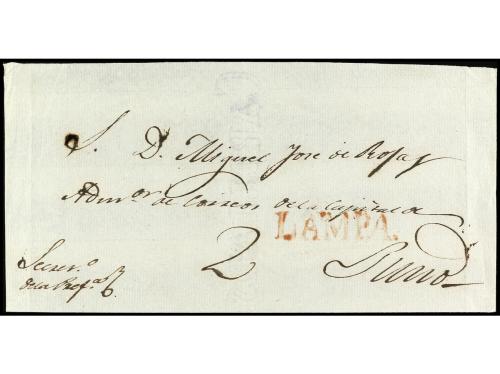 S. D. Miguel José de Rosas
Admor. de Correos de la Capital de
LAMPA.
2 Puno
Secreto.
de la Prefa.